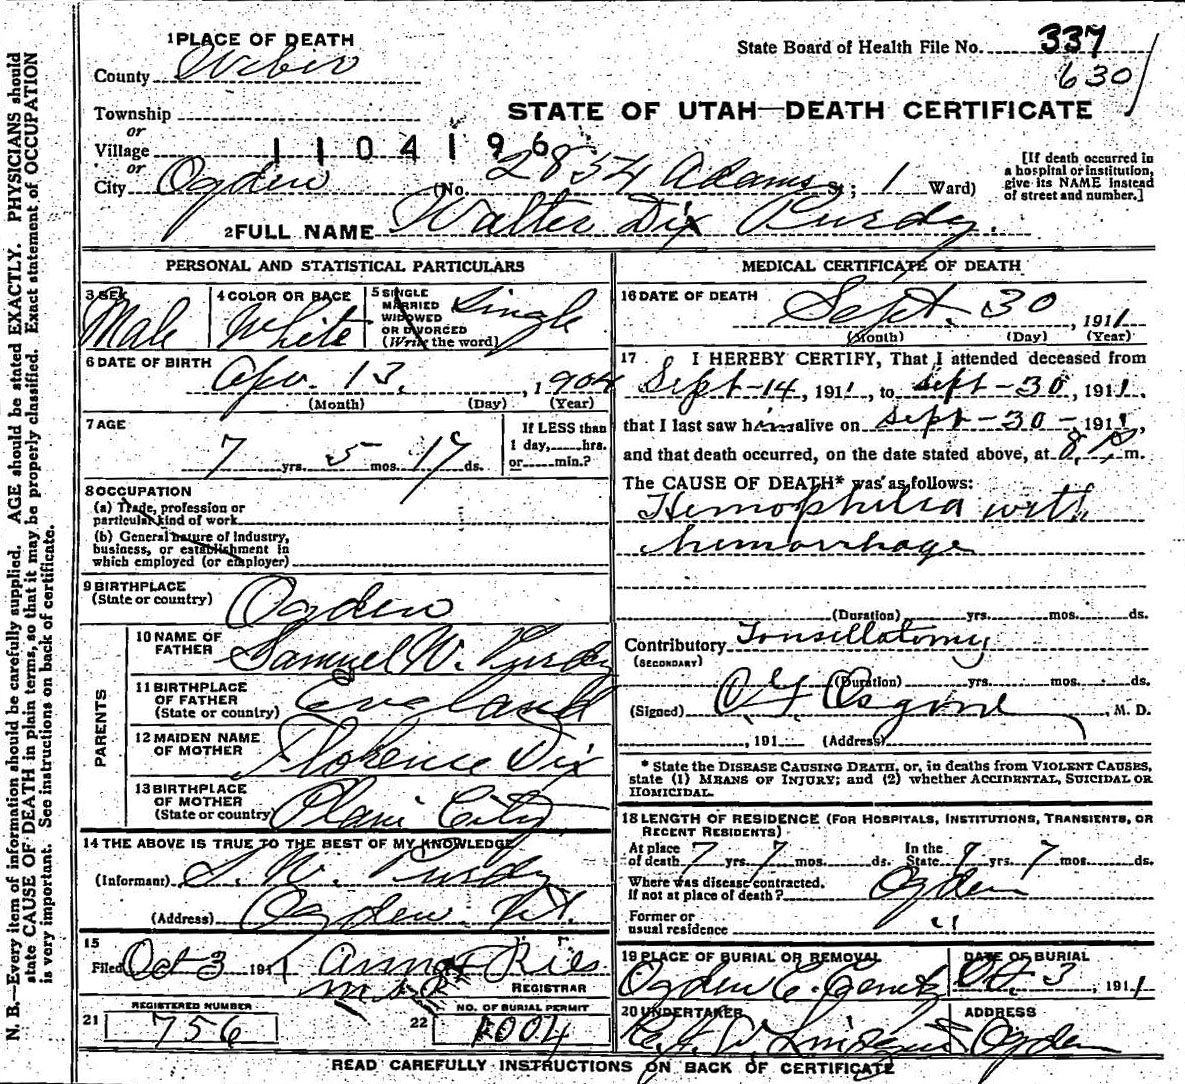 1 PLACE OF DEATH
County Weber
State Board of Health File No. 337
630
STATE OF UTAH—DEATH CERTIFICATE
Township
or
Village
1104196
or
City Ogden (No. 2854 Adams St; 1 Ward)
[If death occurred in a hospital or institution, give its NAME instead of street and number.]
2 FULL NAME Walter Dix Purdy.
PERSONAL AND STATISTICAL PARTICULARS
3 SEX Male
4 COLOR OR RACE White
5 SINGLE MARRIED WIDOWED OR DIVORCED (Write the word) Single
6 DATE OF BIRTH Apr. 13, 1904
(Month) (Day) (Year)
7 AGE
7 yrs. 5 mos. 17 ds.
If LESS than 1 day, hrs. or min.?
8 OCCUPATION
(a) Trade, profession or particular kind of work
(b) General nature of industry, business, or establishment in which employed (or employer)
9 BIRTHPLACE (State or country) Ogden
PARENTS
10 NAME OF FATHER Samuel W. Purdy
11 BIRTHPLACE OF FATHER (State or country) England
12 MAIDEN NAME OF MOTHER Florence Dix
13 BIRTHPLACE OF MOTHER (State or country) Plain City
14 THE ABOVE IS TRUE TO THE BEST OF MY KNOWLEDGE
(Informant) S. W. Purdy
(Address) Ogden, Ut.
15
Filed Oct 3 1911 Anna Ries
REGISTRAR
REGISTERED NUMBER
21 756
NO. OF BURIAL PERMIT
22 1004
MEDICAL CERTIFICATE OF DEATH
16 DATE OF DEATH Sept. 30, 1911
(Month) (Day) (Year)
17. I HEREBY CERTIFY, That I attended deceased from
Sept-14, 1911, to Sept-30, 1911.
that I last saw him alive on Sept-30-1911,
and that death occurred, on the date stated above, at 8 P m.
The CAUSE OF DEATH* was as follows:
Hemophilia with
hemorrhage
(Duration) yrs. mos. ds.
Contributory Tonsillotomy
(SECONDARY)
(Duration) yrs. mos. ds.
(Signed) Osgood, M. D.
, 191 (Address)
* State the DISEASE CAUSING DEATH, or, in deaths from VIOLENT CAUSES, state (1) MEANS OF INJURY; and (2) whether ACCIDENTAL, SUICIDAL OR HOMICIDAL.
18 LENGTH OF RESIDENCE (FOR HOSPITALS, INSTITUTIONS, TRANSIENTS, OR RECENT RESIDENTS)
At place of death 7 yrs. 7 mos. ds. In the State 7 yrs. 7 mos. ds.
Where was disease contracted. If not at place of death? Ogden
Former or usual residence "
19 PLACE OF BURIAL OR REMOVAL
DATE OF BURIAL
Ogden C. Oct. 3, 1911
20 UNDERTAKER
ADDRESS
Ogden
READ CAREFULLY INSTRUCTIONS ON BACK OF CERTIFICATE
N. B.—Every item of information should be carefully supplied. AGE should be stated EXACTLY. PHYSICIANS should
state CAUSE OF DEATH in plain terms, so that it may be properly classified. Exact statement of OCCUPATION
is very important. See instructions on back of certificate.